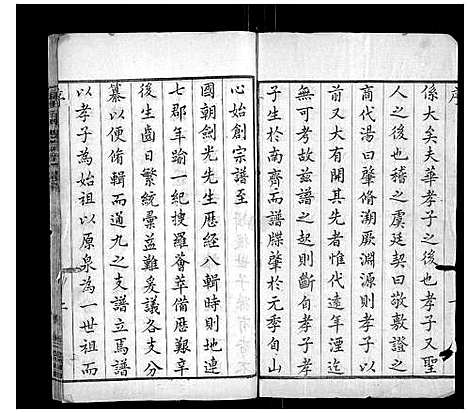 序
係大矣夫華孝子之後也孝子又聖
人之後也稽之虞廷契曰敬敷證之
商代湯曰肇脩溯厥淵源則孝子孝
前又大有開其先者惟代遠年湮迄
無可考故茲譜之起則斷自孝子孝
子生於南齊而譜牒肇於元季自山
心始創宗譜至
國朝劍光先生歷經八輯時則地連
七郡年踰一紀搜羅薈萃備歷艱辛
後生齒日繁統彙益難爰議各支分
纂以便脩輯而通九之支譜立焉譜
以孝子為始祖以原泉為一世祖而